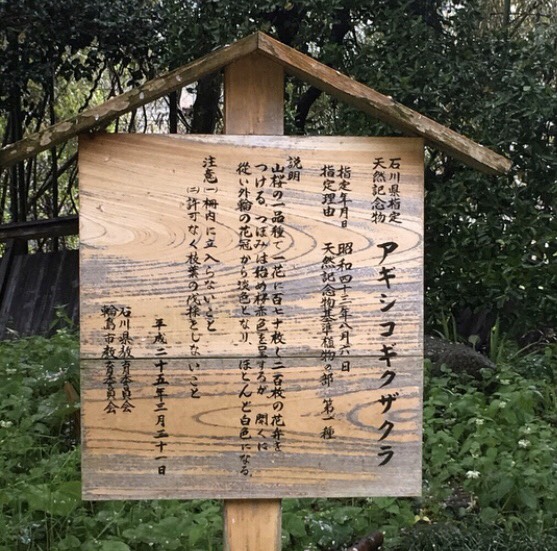 石川県指定
天然記念物
アギシコギクザクラ
指定年月日 昭和四十三年八月六日
指定理由 天然記念物基準植物の部 第一種
説明
山桜の一品種で一花に百七十枚〜二百枚の花弁を
つける、つぼみは始め赤色を呈するが 開くに
從い外輪の花冠から淡色となり、ほとんど白色になる
注意 ㈠柵内に立入らないこと
㈡許可なく枝葉の伐採をしないこと
平成二十五年三月二十一日
石川県教育委員会
輪島市教育委員会